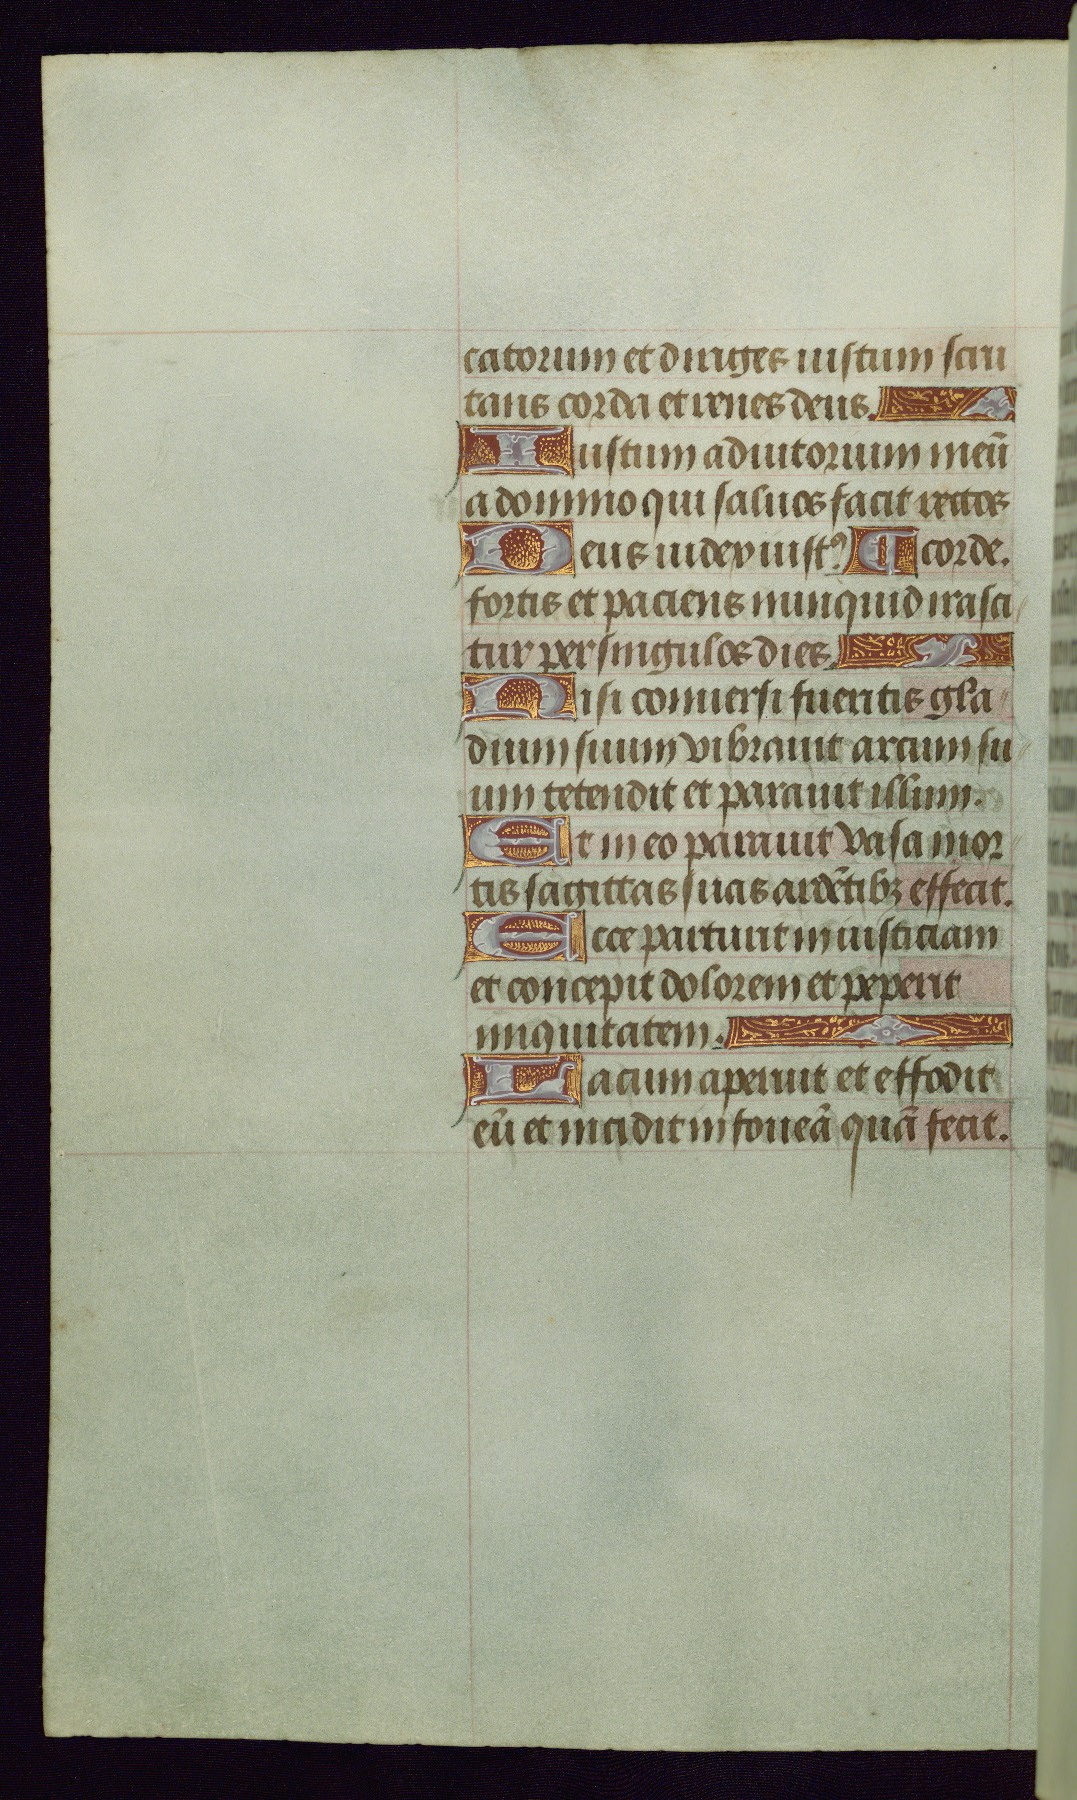 catorum et diriges iustum scru
tans corda et renes deus.
Iustum adiutorium meū
a domino qui saluos facit rectos
Deus iudex iustꝰ corde.
fortis et paciens nunquid irasci
tur per singulos dies.
Nisi conuersi fueritis gla
dium suum vibrauit arcum su
um tetendit et parauit illum.
Et in eo parauit vasa mor
tis sagittas suas ardētibꝫ effecit.
Ecce parturit iniusticiam
et concepit dolorem et peperit
iniquitatem.
Lacum aperuit et effodit
eū et incidit in foueā quā fecit.